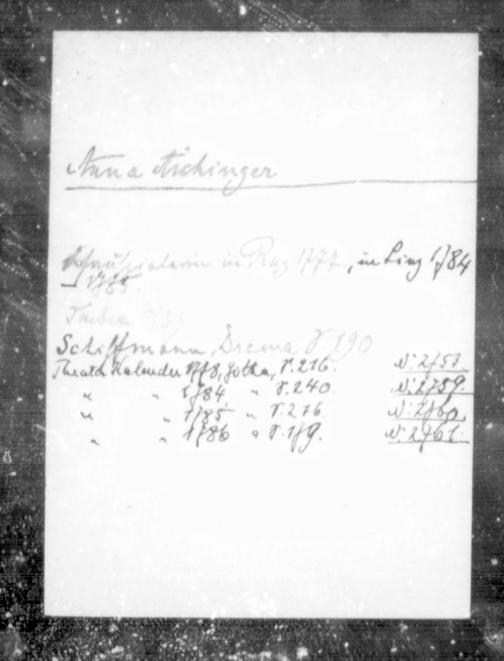 Anna Aichinger
Schauspielerin in Prag 1777, in Linz 1784
1785.
Schiffmann, Drama S. 190
Theater Kalender 1778, Gotha, S. 216. N: 2753.
" " 1784 " S. 240 N: 2759.
" " 1785 " S. 216 N: 2760.
" " 1786 " S. 179. N: 2761.